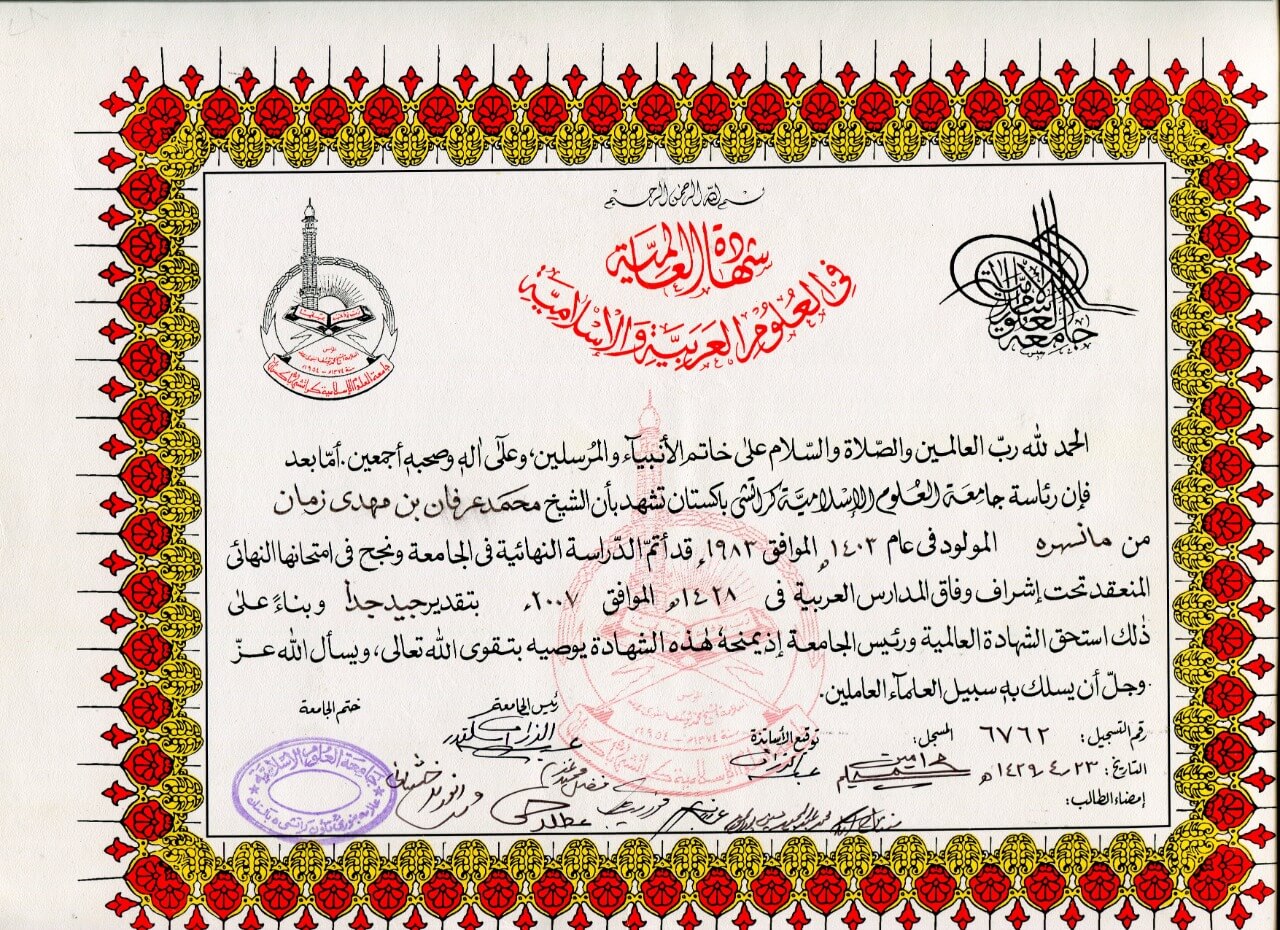 بسم الله الرحمن الرحيم
شهادة العالمية
في العلوم العربية والإسلامية
جامعة العلوم الإسلامية
جامعة العلوم الإسلامية كراتشي
الحمد لله ربّ العالمين والصّلاة والسّلام على خاتم الأنبيآء والمُرسلين، وعلى اٰلهٖ وصحبهٖ أجمعين. أمّا بعد
فإن رئاسة جامعَة العُلوم الإسلاميَّة كراتشى باكستان تشهد بأن الشيخ محمد عرفان بن مهدى زمان
من مانسهره المولود فى عام ١٤٠٣ھ الموافق ١٩٨٣ء قد أتمّ الدّراسة النهائية فى الجامعة ونجح فى امتحانها النهائى
المنعقد تحت إشراف وفاق المدارس العربية فى ١٤٢٨ھ الموافق ٢٠٠٧ء بتقدير جيد جداً وبناءً على
ذٰلك استحق الشهادة العالمية ورئيس الجامعة إذ يمنحهٗ هٰذه الشهادة يوصيه بتقوى الله تعالى، ويسأل الله عزّ
وجلّ أن يسلك بهٖ سبيل العلمآء العاملين.
رئيس الجامعة
ختم الجامعة
رقم التسجيل: ٦٧٦٢ المسجل:
توقيع الأساتذة
التاريخ: ٢٣-٤-١٤٢٩ھ
إمضاء الطالب:
جامعة العلوم الإسلامية
علامه بنوري تاون كراتشي ٥ باكستان